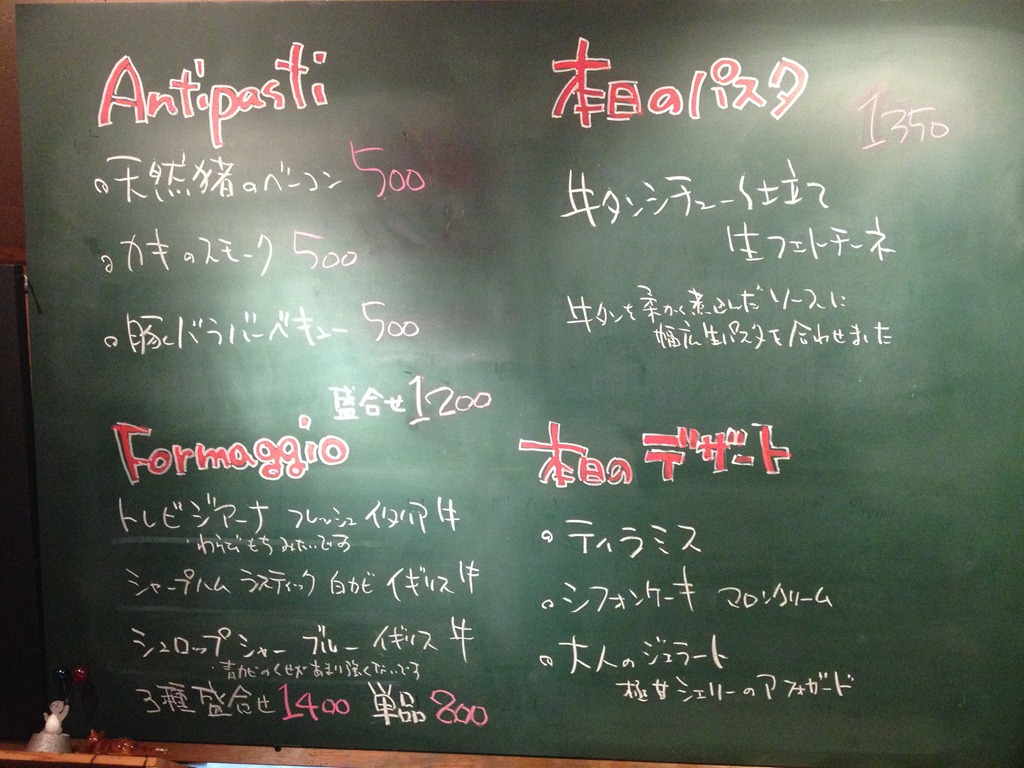 Antipasti
天然猪のベーコン 500
カキのスモーク 500
豚バラバーベキュー 500
盛合せ 1200
Formaggio
トレビジアーナ フレッシュ イタリア 牛
・わらびもちみたいです
シャープハム ラスティック 白カビ イギリス 牛
シュロップシャー ブルー イギリス 牛
・青カビのくせがあまり強くないです
3種盛合せ 1400 単品 800
本日のパスタ
1350
牛タンシチュー仕立て
生フェトチーネ
牛タンを柔かく煮込んだソースに
幅広生パスタを合わせました
本日のデザート
ティラミス
シフォンケーキ マロンクリーム
大人のジェラート
極甘シェリーのアフォガード